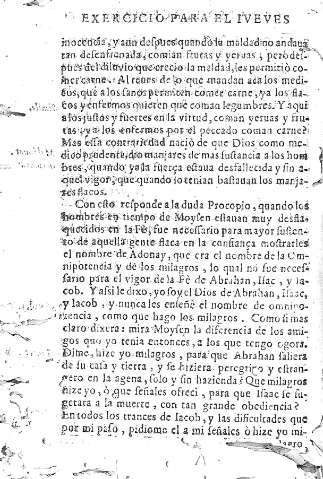 EXERCICIO PARA EL IVEVES
inocencia, y aun despues quando la maldad no andaua
tan desenfrenada, comian frutas y yeruas, pero des-
pues del diluuio que crecio la maldad, les permitió co-
mer carne. Al reues de lo que mandan aca los medi-
cos, que a los sanos permiten comer carne, y a los fla-
cos y enfermos quieren que coman legumbres. Y aqui
a los justos y fuertes en la virtud, coman yeruas y fru-
tas, y a los enfermos por el peccado coman carne?
Mas esta contrariedad nació de que Dios como me-
dico prudente, dio manjares de mas sustancia a los hom
bres, quando ya la fuerça estaua desfallecida y sin a-
quel vigor, que quando lo tenian bastauan los manja-
res flacos.
Con esto responde a la duda Procopio, quando los
hombres en tiempo de Moysen estauan muy desfla-
quecidos en la Fè, fue necessario para mayor susten-
to de aquella gente flaca en la confiança mostrarles
el nombre de Adonay, que era el nombre de la Om-
nipotencia y de los milagros, lo qual no fue neces-
sario para el vigor de la Fè de Abrahan, Isac, y Ia-
cob. Y assi le dixo, yo soy el Dios de Abrahan, Isaac,
y Iacob, y nunca les enseñè el nombre de omnipo-
tencia, como que hago los milagros. Como si mas
claro dixera: mira Moysen la diferencia de los ami-
gos que yo tenia entonces, a los que tengo agora.
Dime, hize yo milagros, para que Abrahan saliera
de su casa y tierra, y se hiziera peregrino y estran-
gero en la agena, solo y sin hazienda? Que milagros
hize yo, ò que señales ofreci, para que Isaac se su-
getara a la muerte, con tan grande obediencia?
En todos los trances de Iacob, y las dificultades que
por mi paso, pidiome el a mi señales ò hize yo mi-
lagro,